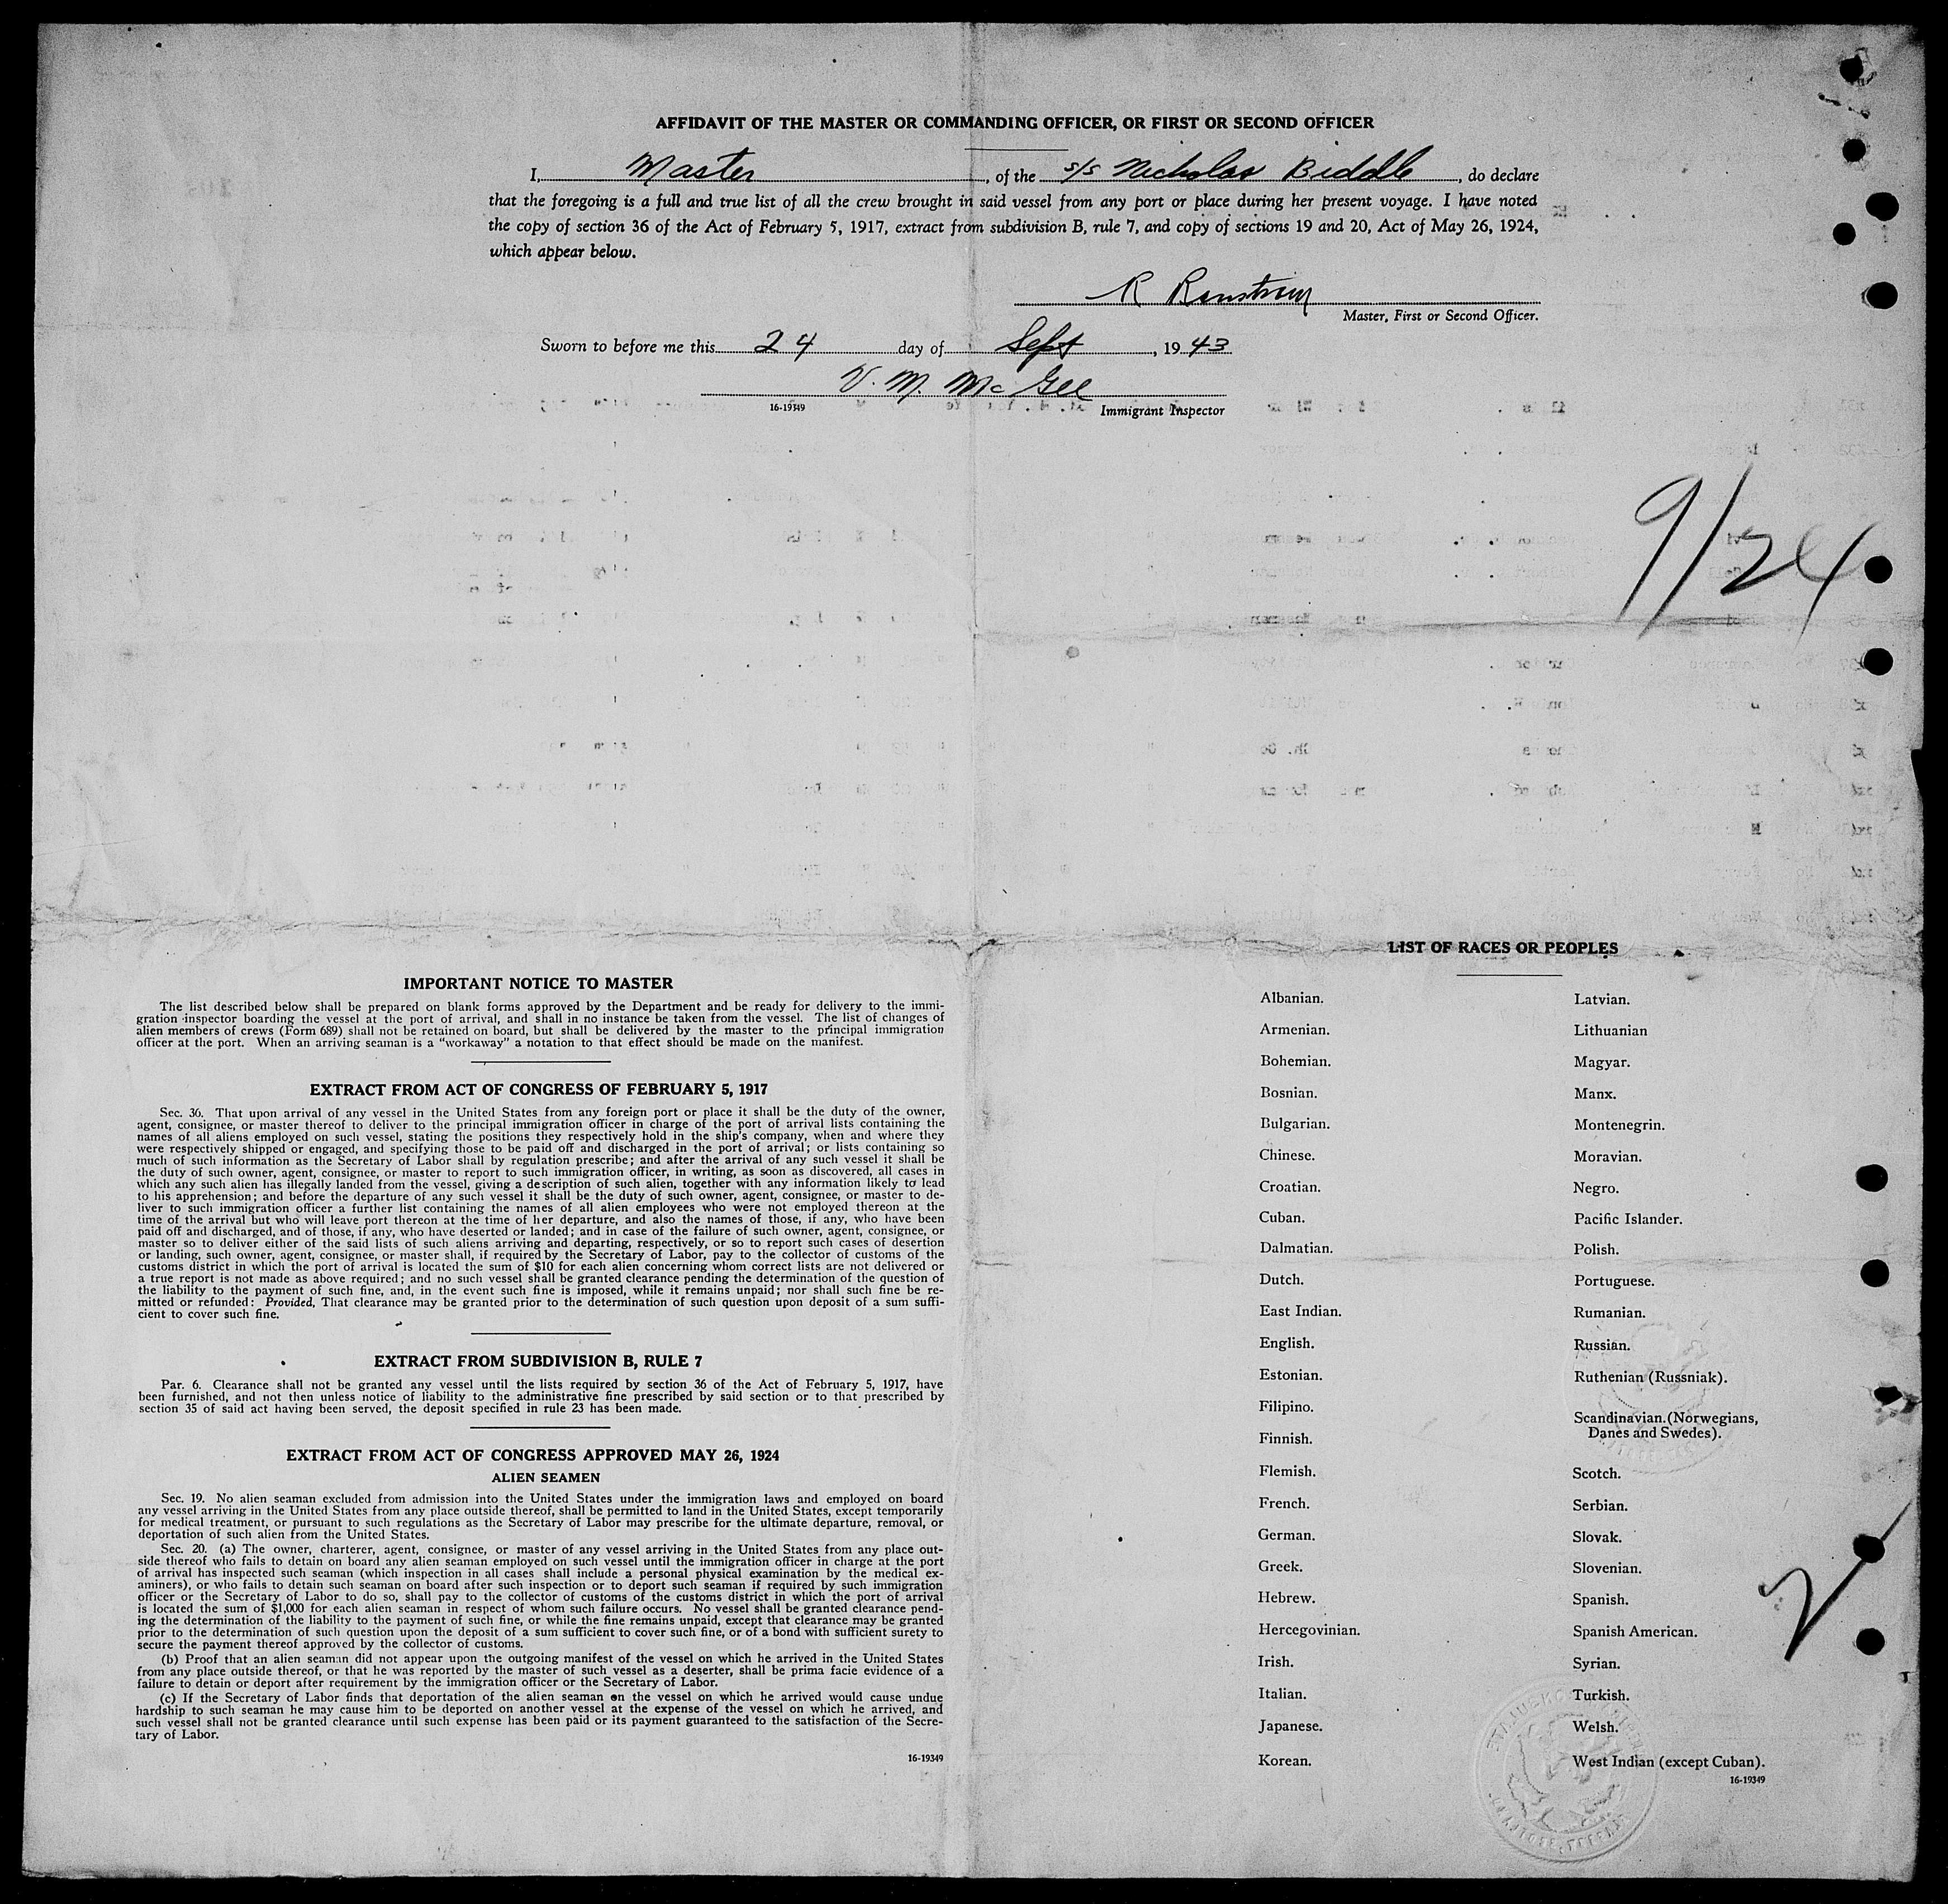 AFFIDAVIT OF THE MASTER OR COMMANDING OFFICER, OR FIRST OR SECOND OFFICER
I, Master, of the s/s Nicholas Biddle, do declare
that the foregoing is a full and true list of all the crew brought in said vessel from any port or place during her present voyage. I have noted
the copy of section 36 of the Act of February 5, 1917, extract from subdivision B, rule 7, and copy of sections 19 and 20, Act of May 26, 1924,
which appear below.
R
Master, First or Second Officer.
Sworn to before me this 24 day of Sept, 1943
V. M. McGee
16-19349 Immigrant Inspector
9/24
IMPORTANT NOTICE TO MASTER
The list described below shall be prepared on blank forms approved by the Department and be ready for delivery to the immi-
gration inspector boarding the vessel at the port of arrival, and shall in no instance be taken from the vessel. The list of changes of
alien members of crews (Form 689) shall not be retained on board, but shall be delivered by the master to the principal immigration
officer at the port. When an arriving seaman is a "workaway" a notation to that effect should be made on the manifest.
EXTRACT FROM ACT OF CONGRESS OF FEBRUARY 5, 1917
Sec. 36. That upon arrival of any vessel in the United States from any foreign port or place it shall be the duty of the owner,
agent, consignee, or master thereof to deliver to the principal immigration officer in charge of the port of arrival lists containing the
names of all aliens employed on such vessel, stating the positions they respectively hold in the ship's company, when and where they
were respectively shipped or engaged, and specifying those to be paid off and discharged in the port of arrival; or lists containing so
much of such information as the Secretary of Labor shall by regulation prescribe; and after the arrival of any such vessel it shall be
the duty of such owner, agent, consignee, or master to report to such immigration officer, in writing, as soon as discovered, all cases in
which any such alien has illegally landed from the vessel, giving a description of such alien, together with any information likely to lead
to his apprehension; and before the departure of any such vessel it shall be the duty of such owner, agent, consignee, or master to de-
liver to such immigration officer a further list containing the names of all alien employees who were not employed thereon at the
time of the arrival but who will leave port thereon at the time of her departure, and also the names of those, if any, who have been
paid off and discharged, and of those, if any, who have deserted or landed; and in case of the failure of such owner, agent, consignee, or
master so to deliver either of the said lists of such aliens arriving and departing, respectively, or so to report such cases of desertion
or landing, such owner, agent, consignee, or master shall, if required by the Secretary of Labor, pay to the collector of customs of the
customs district in which the port of arrival is located the sum of $10 for each alien concerning whom correct lists are not delivered or
a true report is not made as above required; and no such vessel shall be granted clearance pending the determination of the question of
the liability to the payment of such fine, and, in the event such fine is imposed, while it remains unpaid; nor shall such fine be re-
mitted or refunded: Provided, That clearance may be granted prior to the determination of such question upon deposit of a sum suffi-
cient to cover such fine.
EXTRACT FROM SUBDIVISION B, RULE 7
Par. 6. Clearance shall not be granted any vessel until the lists required by section 36 of the Act of February 5, 1917, have
been furnished, and not then unless notice of liability to the administrative fine prescribed by said section or to that prescribed by
section 35 of said act having been served, the deposit specified in rule 23 has been made.
EXTRACT FROM ACT OF CONGRESS APPROVED MAY 26, 1924
ALIEN SEAMEN
Sec. 19. No alien seaman excluded from admission into the United States under the immigration laws and employed on board
any vessel arriving in the United States from any place outside thereof, shall be permitted to land in the United States, except temporarily
for medical treatment, or pursuant to such regulations as the Secretary of Labor may prescribe for the ultimate departure, removal, or
deportation of such alien from the United States.
Sec. 20. (a) The owner, charterer, agent, consignee, or master of any vessel arriving in the United States from any place out-
side thereof who fails to detain on board any alien seaman employed on such vessel until the immigration officer in charge at the port
of arrival has inspected such seaman (which inspection in all cases shall include a personal physical examination by the medical ex-
aminers), or who fails to detain such seaman on board after such inspection or to deport such seaman if required by such immigration
officer or the Secretary of Labor to do so, shall pay to the collector of customs of the customs district in which the port of arrival
is located the sum of $1,000 for each alien seaman in respect of whom such failure occurs. No vessel shall be granted clearance pend-
ing the determination of the liability to the payment of such fine, or while the fine remains unpaid, except that clearance may be granted
prior to the determination of such question upon the deposit of a sum sufficient to cover such fine, or of a bond with sufficient surety to
secure the payment thereof approved by the collector of customs.
(b) Proof that an alien seaman did not appear upon the outgoing manifest of the vessel on which he arrived in the United States
from any place outside thereof, or that he was reported by the master of such vessel as a deserter, shall be prima facie evidence of a
failure to detain or deport after requirement by the immigration officer or the Secretary of Labor.
(c) If the Secretary of Labor finds that deportation of the alien seaman on the vessel on which he arrived would cause undue
hardship to such seaman he may cause him to be deported on another vessel at the expense of the vessel on which he arrived, and
such vessel shall not be granted clearance until such expense has been paid or its payment guaranteed to the satisfaction of the Secre-
tary of Labor.
16-19349
LIST OF RACES OR PEOPLES
Albanian.
Armenian.
Bohemian.
Bosnian.
Bulgarian.
Chinese.
Croatian.
Cuban.
Dalmatian.
Dutch.
East Indian.
English.
Estonian.
Filipino.
Finnish.
Flemish.
French.
German.
Greek.
Hebrew.
Hercegovinian.
Irish.
Italian.
Japanese.
Korean.
Latvian.
Lithuanian
Magyar.
Manx.
Montenegrin.
Moravian.
Negro.
Pacific Islander.
Polish.
Portuguese.
Rumanian.
Russian.
Ruthenian (Russniak).
Scandinavian.(Norwegians,
Danes and Swedes).
Scotch.
Serbian.
Slovak.
Slovenian.
Spanish.
Spanish American.
Syrian.
Turkish.
Welsh.
West Indian (except Cuban).
16-19349